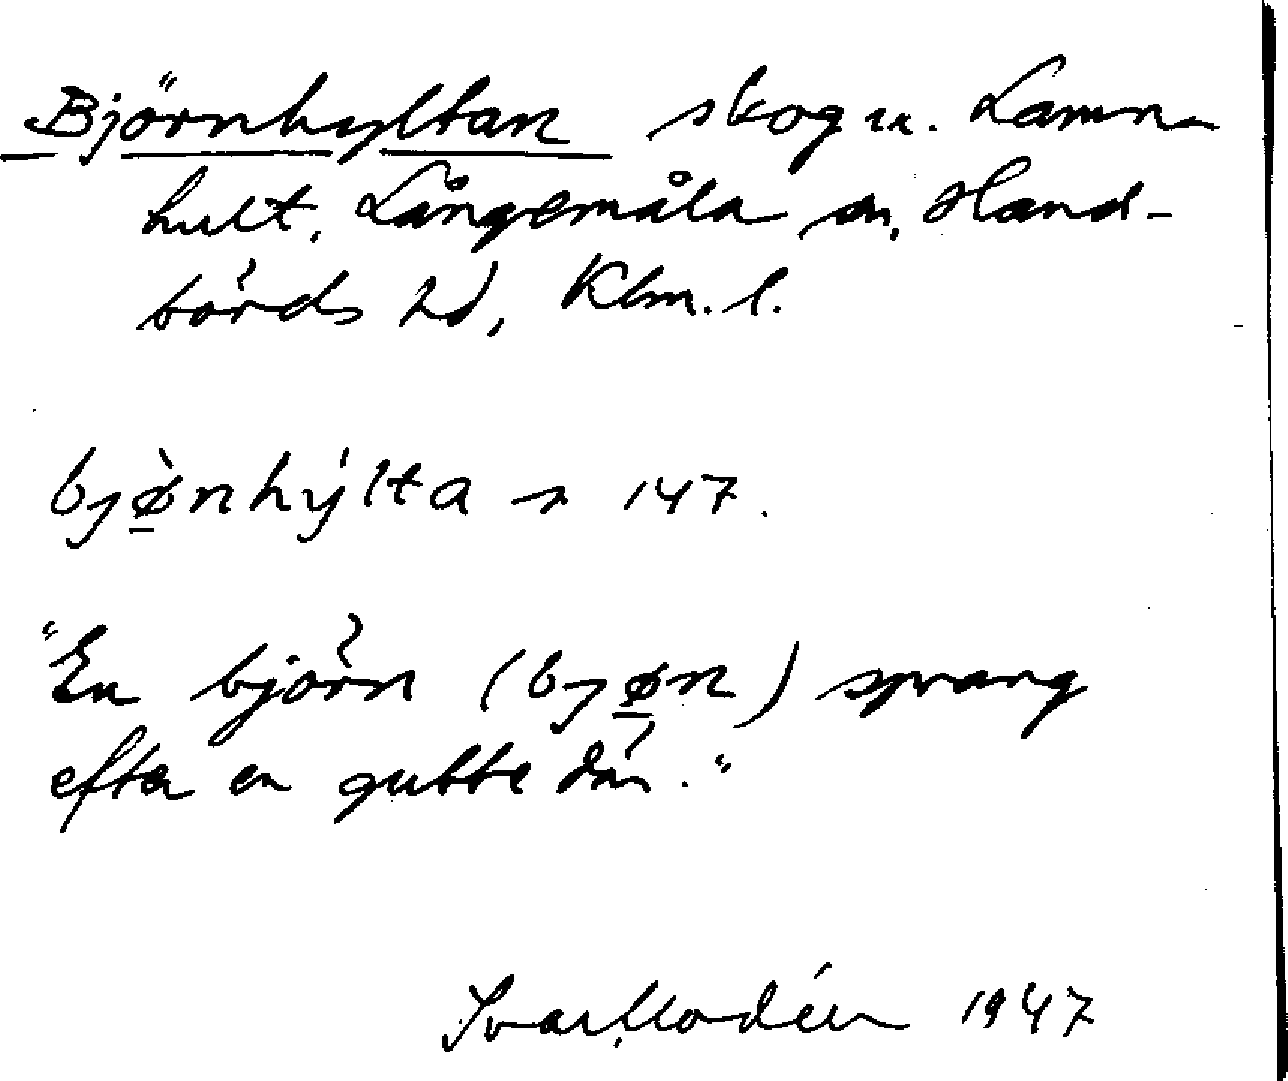 Björnhyltan skog u. Lamn-
hult, Långemåla sn, Hand-
börds hd, Klm. l.
bjø̀nhýlta s 147.
"En björn (bjøn) sprang
efter en gubbe där."
Ivar Modéer 1947